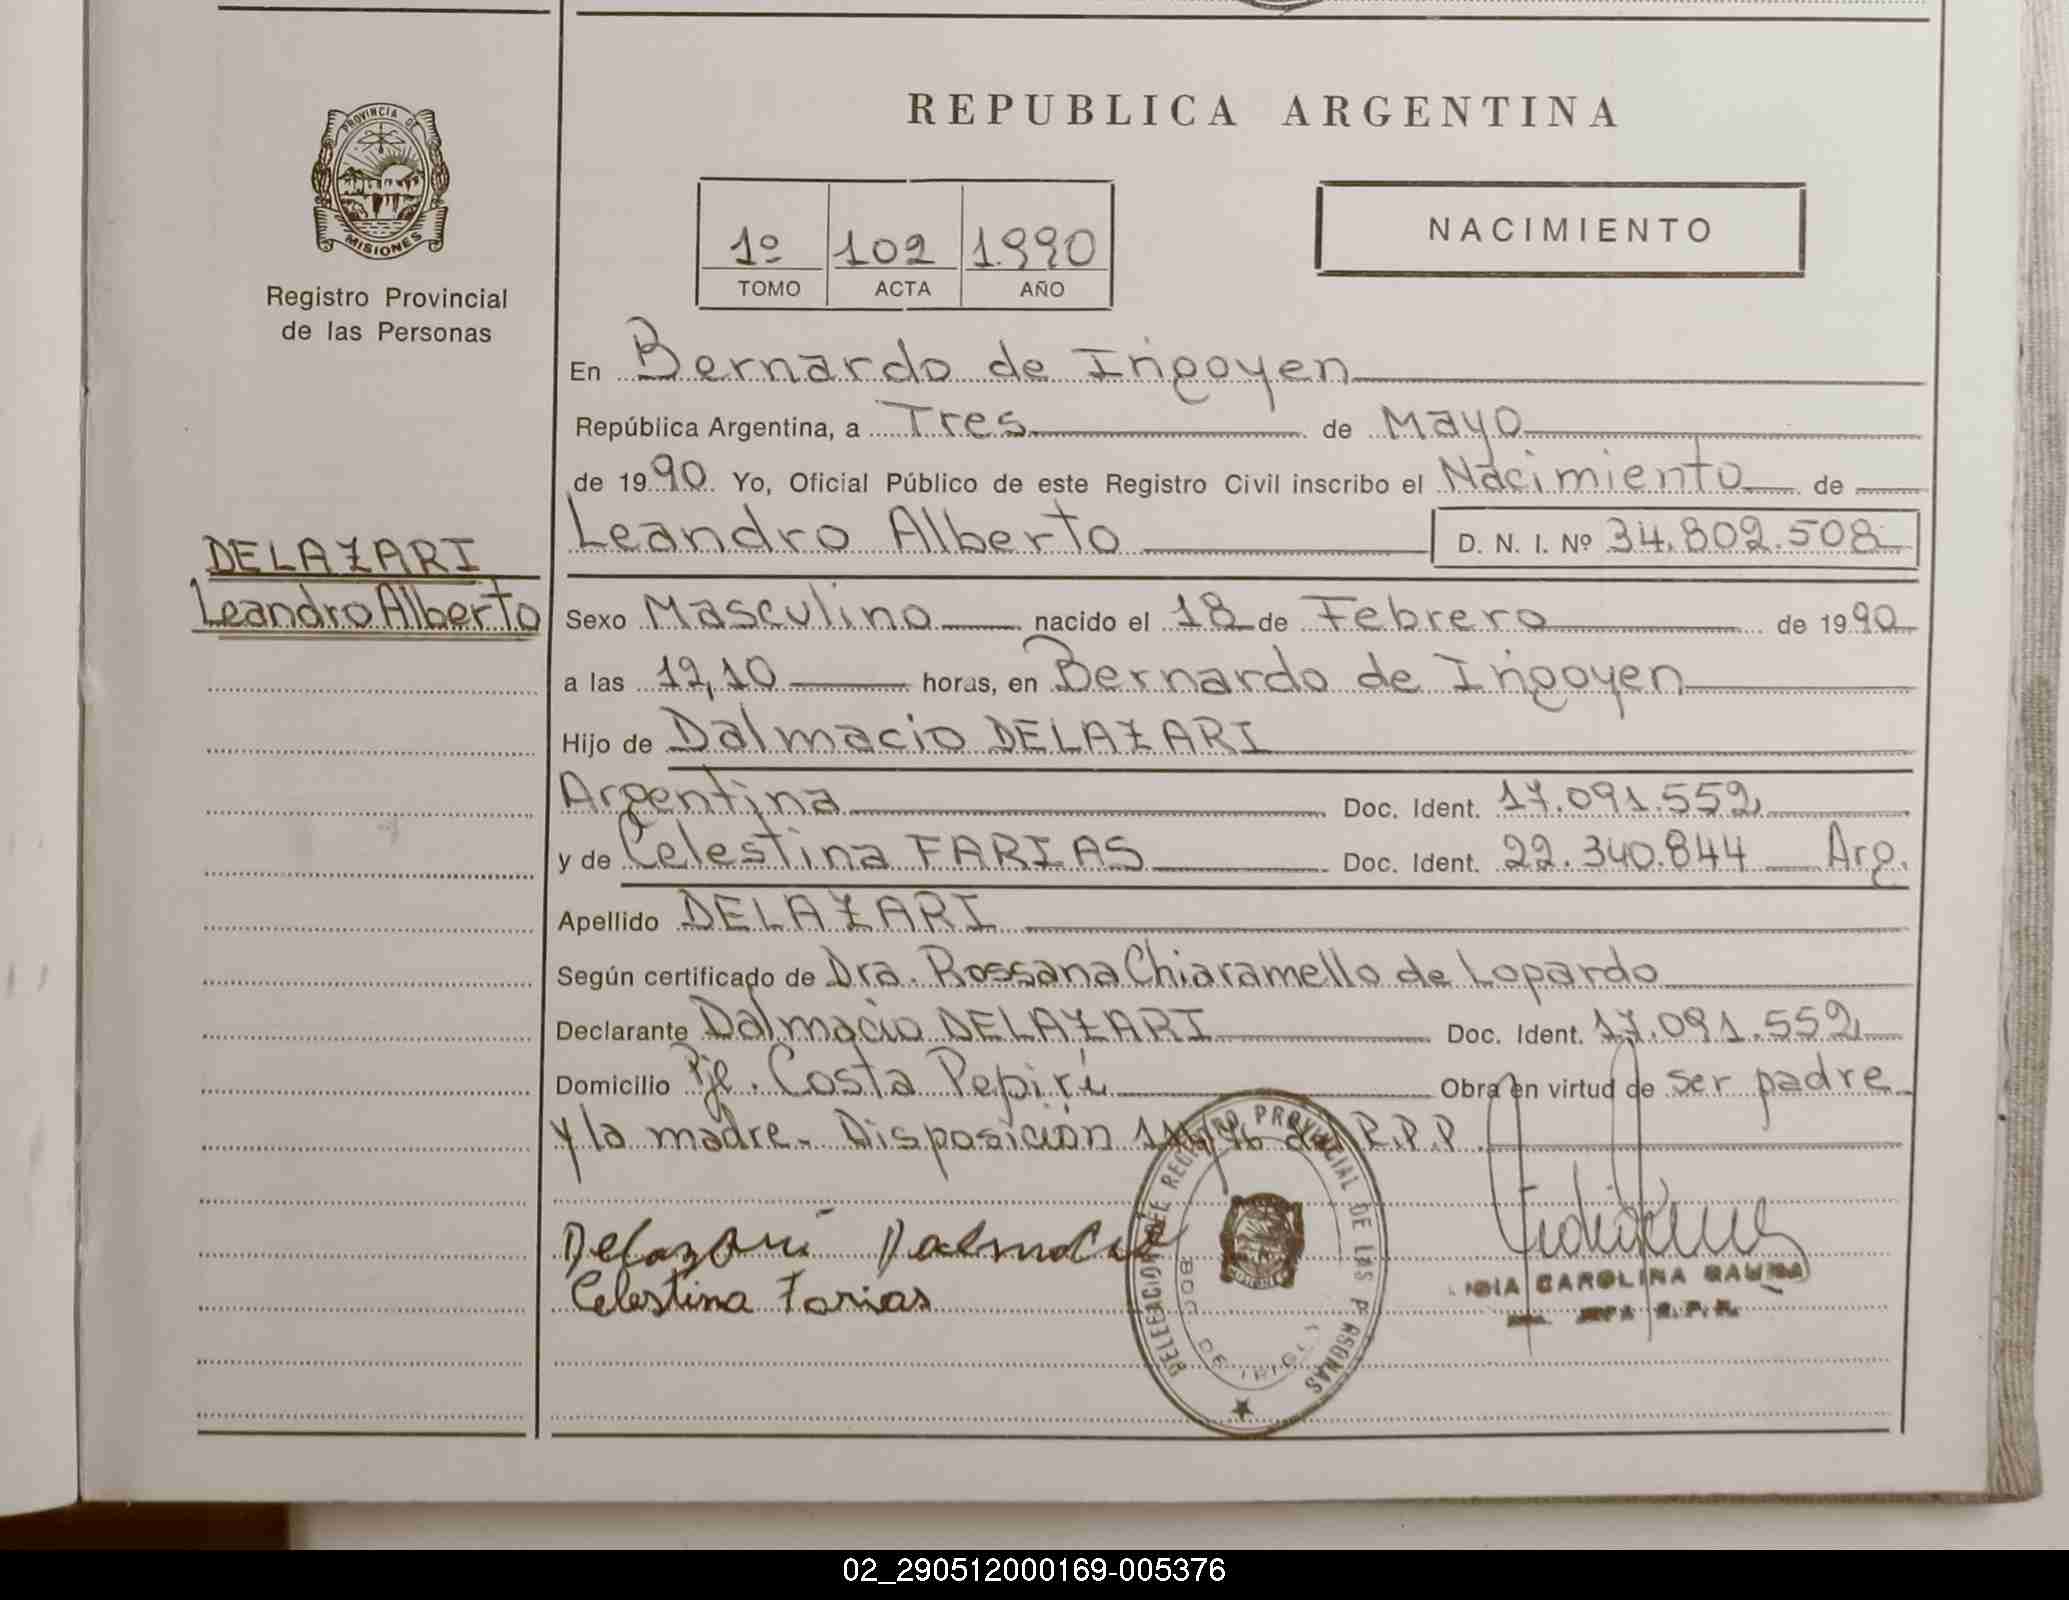 REPUBLICA ARGENTINA
PROVINCIA DE
MISIONES
Registro Provincial
de las Personas
NACIMIENTO
1º 102 1.990
TOMO ACTA AÑO
En Bernardo de Irigoyen
República Argentina, a Tres de Mayo
de 1990 Yo, Oficial Público de este Registro Civil inscribo el Nacimiento de
Leandro Alberto D. N. I. Nº 34.802.508
DELAZARI
Leandro Alberto
Sexo Masculino nacido el 18 de Febrero de 1990
a las 12,10 horas, en Bernardo de Irigoyen
Hijo de Dalmacio DELAZARI
Argentina Doc. Ident. 17.091.552
y de Celestina FARIAS Doc. Ident. 22.340.844 Arg.
Apellido DELAZARI
Según certificado de Dra. Rossana Chiaramello de Lopardo
Declarante Dalmacio DELAZARI Doc. Ident. 17.091.552
Domicilio Pje. Costa Pepirí Obra en virtud de ser padre
y la madre. Disposición del R.P.P
Delazari Dalmacio
Celestina Farias
DELEGACION DEL REGISTRO PROVINCIAL DE LAS PERSONAS
CAROLINA
02_290512000169-005376